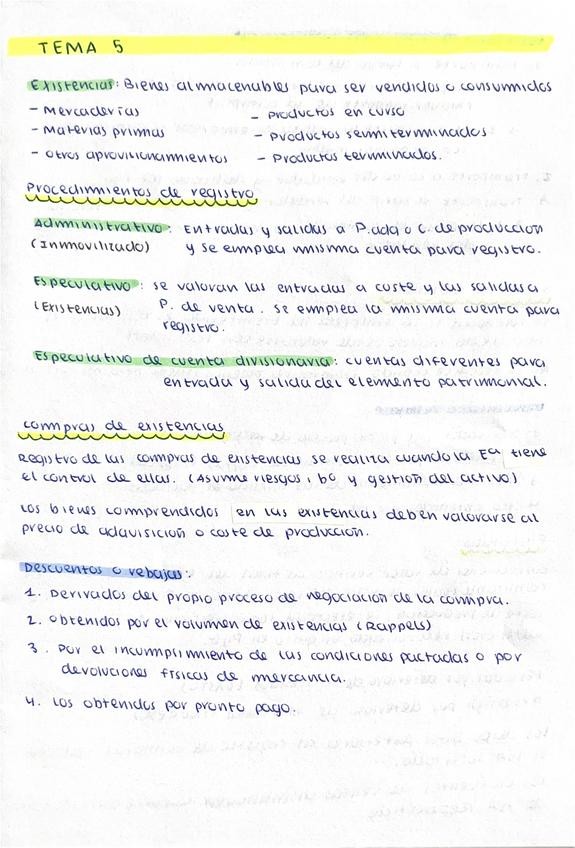 TEMA 5
Existencias: Bienes almacenables para ser vendidos o consumidos
- Mercaderías - productos en curso
- Materias primas - Productos semiterminados
- otros aprovisionamientos - Productos terminados.
Procedimientos de registro
Administrativo: Entradas y salidas a P.adq o C. de produccion
(Inmovilizado) y se emplea misma cuenta para registro.
Especulativo: se valoran las entradas a coste y las salidas a
(Existencias) P. de venta. se emplea la misma cuenta para
registro.
Especulativo de cuenta divisionaria: cuentas diferentes para
entrada y salida del elemento patrimonial.
compras de existencias
Registro de las compras de existencias se realiza cuando la Eª tiene
el control de ellas. (Asume riesgos, bº y gestión del activo)
Los bienes comprendidos en las existencias deben valorarse al
precio de adquisición o coste de producción.
Descuentos o rebajas:
1. Derivados del propio proceso de negociación de la compra.
2. obtenidos por el volumen de existencias (Rappels)
3. Por el incumplimiento de las condiciones pactadas o por
devoluciones físicas de mercancía.
4. Los obtenidos por pronto pago.